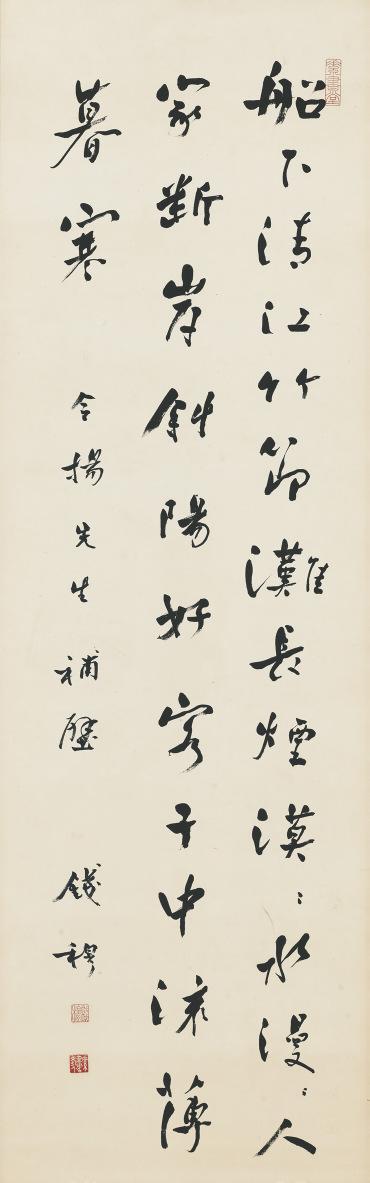 素書堂
船下清江竹節灘長煙漠〻水漫〻人
家斷岸斜陽好客子中流薄
暮寒
令揚先生補壁
錢穆